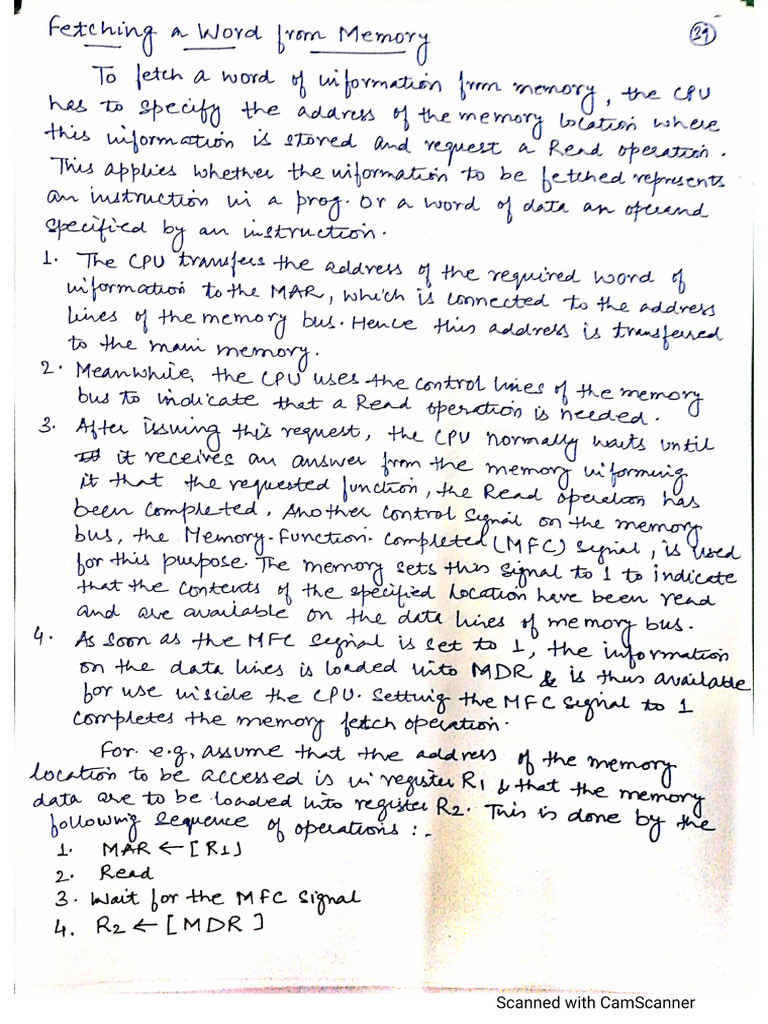 Fetching a Word from Memory
29
To fetch a word of information from memory, the CPU
has to specify the address of the memory location where
this information is stored and request a Read operation.
This applies whether the information to be fetched represents
an instruction in a prog. Or a word of data an operand
specified by an instruction.
1. The CPU transfers the address of the required word of
information to the MAR, which is connected to the address
lines of the memory bus. Hence this address is transferred
to the main memory.
2. Meanwhile, the CPU uses the control lines of the memory
bus to indicate that a Read operation is needed.
3. After issuing this request, the CPU normally waits until
it receives an answer from the memory informing
it that the requested function, the Read operation has
been completed. Another control signal on the memory
bus, the Memory-Function-Completed (MFC) signal, is used
for this purpose. The memory sets this signal to 1 to indicate
that the contents of the specified location have been read
and are available on the data lines of memory bus.
4. As soon as the MFC signal is set to 1, the information
on the data lines is loaded into MDR & is thus available
for use inside the CPU. Setting the MFC signal to 1
completes the memory fetch operation.
For e.g, assume that the address of the memory
location to be accessed is in register R1 & that the memory
data are to be loaded into register R2. This is done by the
following sequence of operations :-
1. MAR ← [R1]
2. Read
3. Wait for the MFC signal
4. R2 ← [MDR]
Scanned with CamScanner